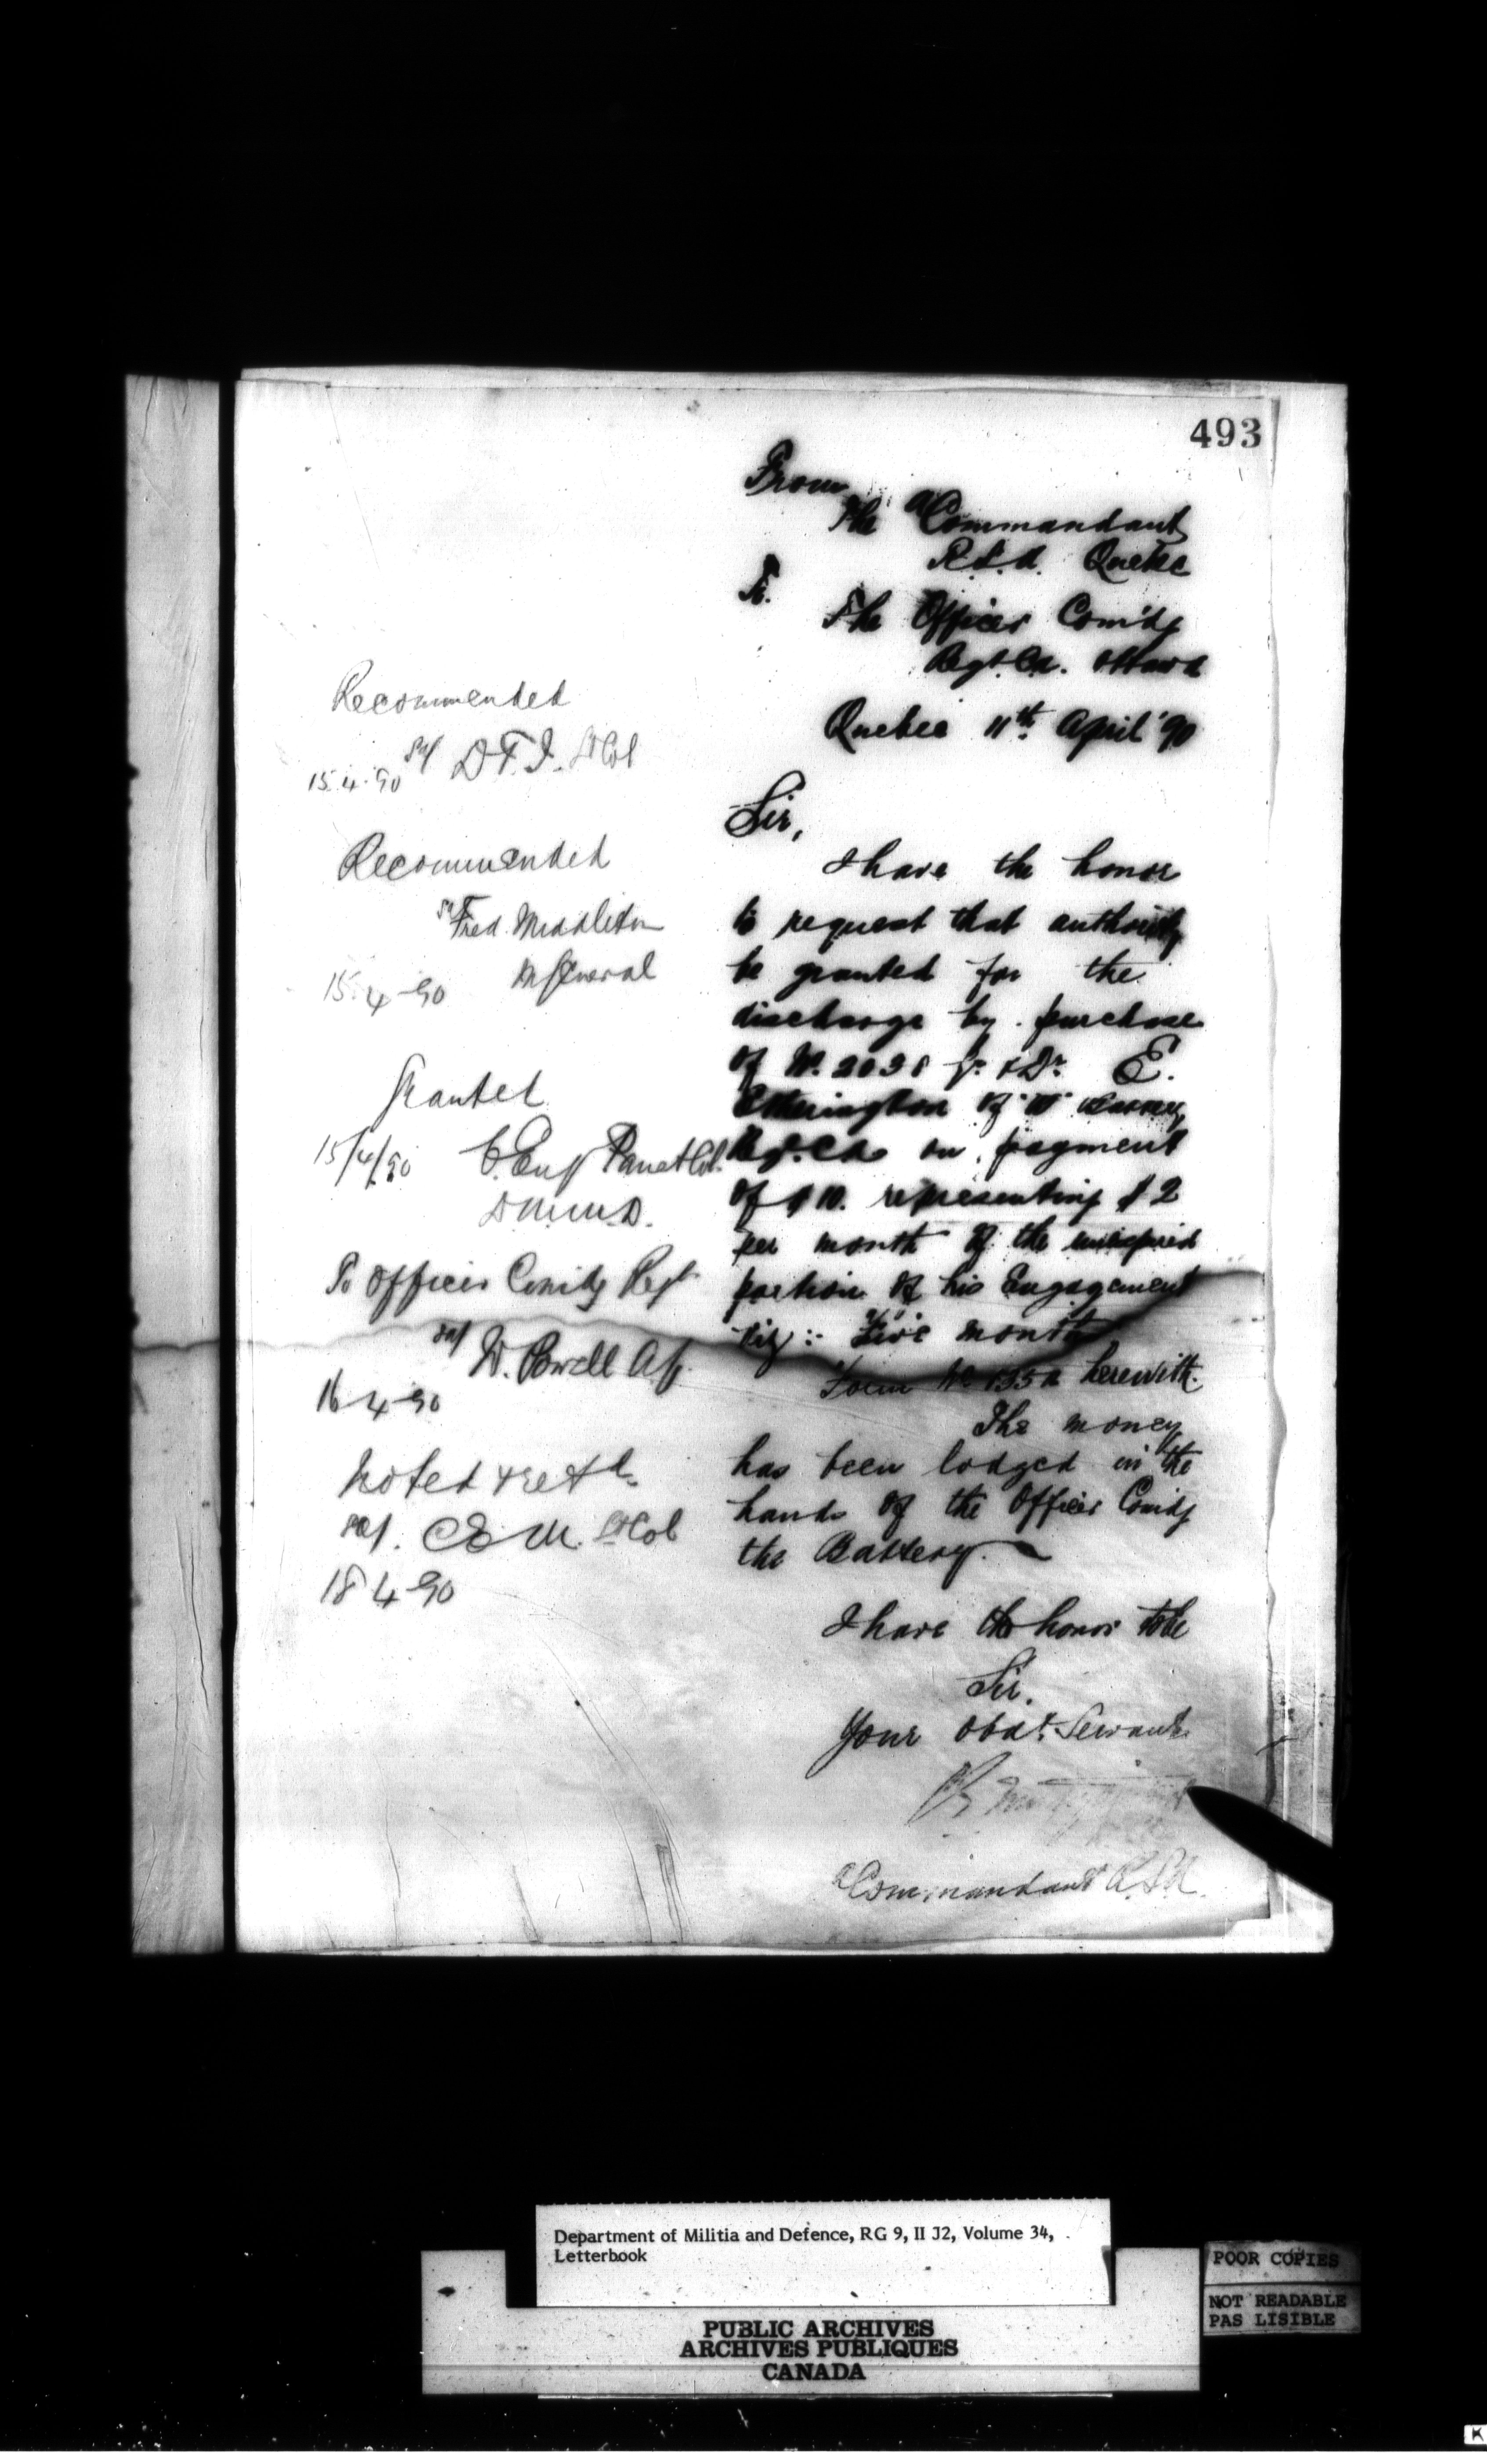 493
From
The a/Commandant
R.S.A. Quebec
To.
The Officer Com'dg
Regt. C.A. Ottawa
Quebec 11th April '90
Sir,
I have the honor
to request that authority
be granted for the
discharge by purchase
of No. 2038 Gr. & Dr. E.
Etherington of "B" Battery
Regt. C.A. on payment
of $10. representing $2
per month of the unexpired
portion of his Engagement
viz: Five months
Form No. 135a herewith.
The money
has been lodged in the
hands of the Officer Comdg
the Battery.
I have the honor to be
Sir.
Your Obdt. Servant
a/Commandant R.S.A.
Recommended
sd/ D.T.I. Lt Col
15.4.90
Recommended
sd/ Fred. Middleton
M General
15-4-90
Granted
15/4/90 C. Eug Panet Col.
D.M.M.D.
To Officer Comdg Regt
sd/ W. Powell AG.
16-4-90
Noted & retd.
sd/. C.E.M. Lt Col
18-4-90
Department of Militia and Defence, RG 9, II J2, Volume 34,
Letterbook
POOR COPIES
NOT READABLE
PAS LISIBLE
PUBLIC ARCHIVES
ARCHIVES PUBLIQUES
CANADA
K